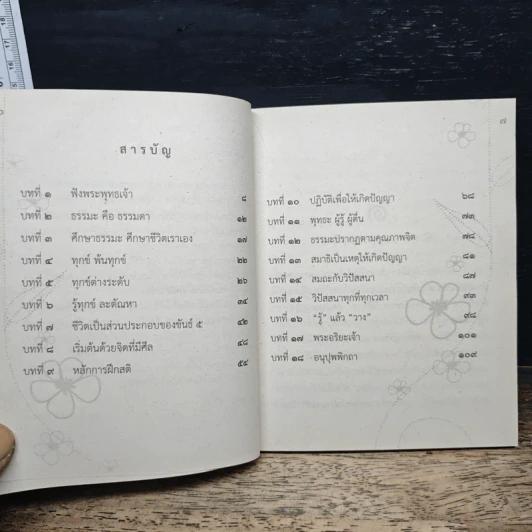 สารบัญ
บทที่ ๑ ฟังพระพุทธเจ้า ๘
บทที่ ๒ ธรรมะ คือ ธรรมดา ๑๒
บทที่ ๓ ศึกษาธรรมะ ศึกษาชีวิตเราเอง ๑๗
บทที่ ๔ ทุกข์ พ้นทุกข์ ๒๒
บทที่ ๕ ทุกข์ต่างระดับ ๒๖
บทที่ ๖ รู้ทุกข์ ละตัณหา ๓๔
บทที่ ๗ ชีวิตเป็นส่วนประกอบของขันธ์ ๕ ๔๒
บทที่ ๘ เริ่มต้นด้วยจิตที่มีศีล ๔๘
บทที่ ๙ หลักการฝึกสติ ๕๔
๗
บทที่ ๑๐ ปฏิบัติเพื่อให้เกิดปัญญา ๖๘
บทที่ ๑๑ พุทธะ ผู้รู้ ผู้ตื่น ๗๓
บทที่ ๑๒ ธรรมะปรากฏตามคุณภาพจิต ๗๘
บทที่ ๑๓ สมาธิเป็นเหตุให้เกิดปัญญา ๘๑
บทที่ ๑๔ สมถะกับวิปัสสนา ๘๗
บทที่ ๑๕ วิปัสสนาทุกที่ทุกเวลา ๙๓
บทที่ ๑๖ "รู้" แล้ว "วาง" ๙๘
บทที่ ๑๗ พระอริยะเจ้า ๑๐๑
บทที่ ๑๘ อนุปุพพิกถา ๑๐๙